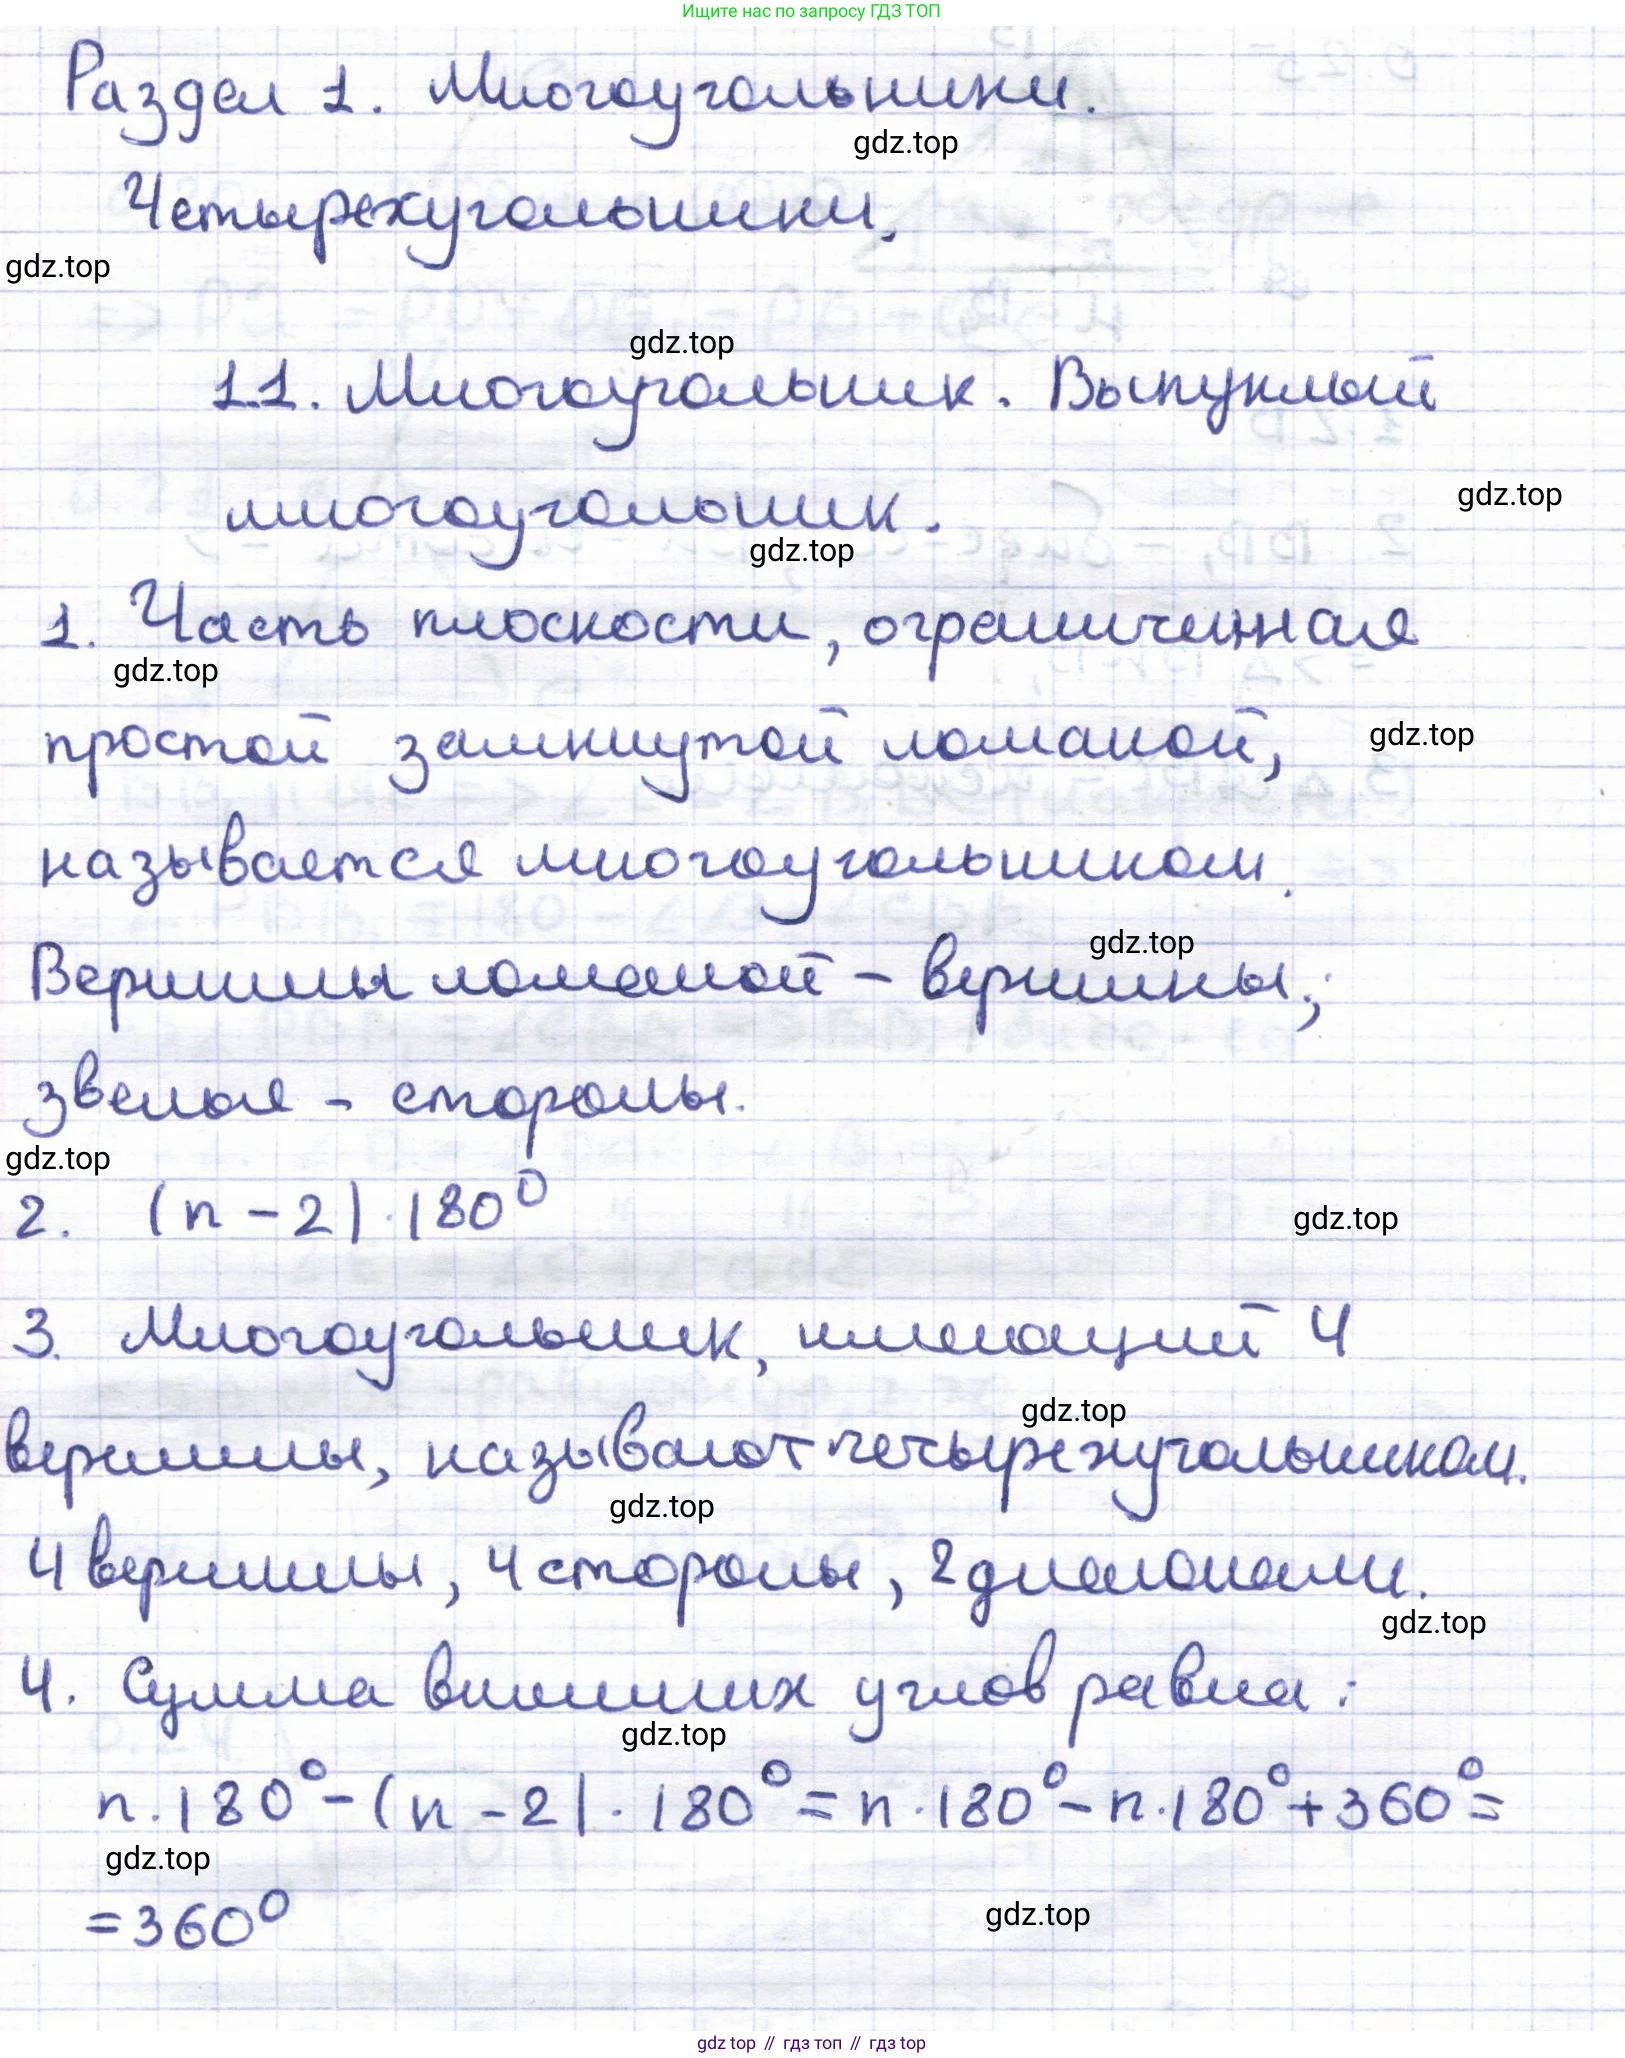 Ищите нас по запросу ГДЗ ТОП
Раздел 1. Многоугольники.
gdz.top
Четырехугольники.
gdz.top
gdz.top
1.1. Многоугольник. Выпуклый
gdz.top
многоугольник.
gdz.top
1. Часть плоскости, ограниченная
gdz.top
простой замкнутой ломаной,
gdz.top
называется многоугольником.
gdz.top
Вершины ломаной – вершины;
звенья – стороны.
gdz.top
2. (n – 2) · 180°
gdz.top
3. Многоугольник, имеющий 4
gdz.top
вершины, называют четырехугольником.
gdz.top
4 вершины, 4 стороны, 2 диагонали.
gdz.top
4. Сумма внешних углов равна:
gdz.top
n · 180° – (n – 2) · 180° = n · 180° – n · 180° + 360° =
gdz.top
= 360°
gdz.top
gdz top // гдз топ // gdz top